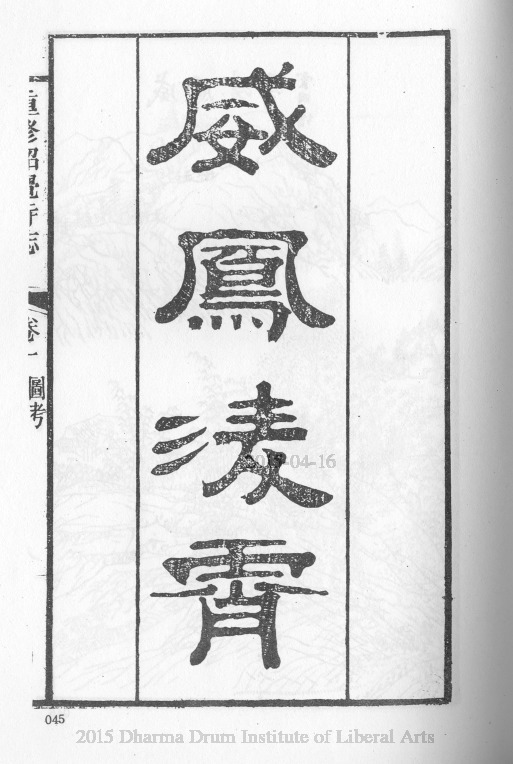 威鳳淩霄
重修昭覺寺志
卷一 圖考
2015-04-16
045
2015 Dharma Drum Institute of Liberal Arts